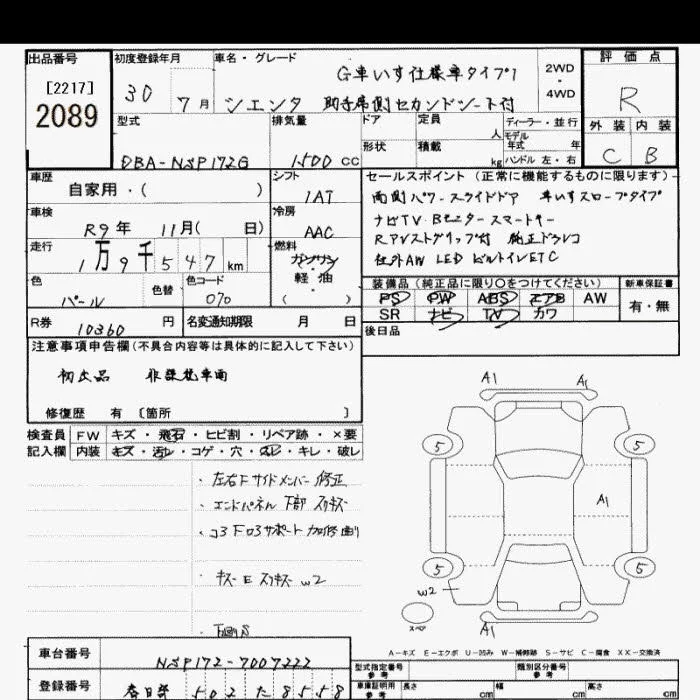 出品番号
[2217]
2089
初度登録年月
30 7月
車名・グレード
G車いす仕様車タイプ1
シエンタ 助手席側セカンドシート付
2WD
・
4WD
評価点
R
外装 内装
C B
型式
DBA-NSP172G
排気量
1500 cc
ドア
形状
定員
人
積載
kg
ディーラー・並行
モデル
年式 年
ハンドル 左・右
車歴
自家用・( )
シフト
1AT
車検
R9年 11月( 日)
冷房
AAC
走行
1万9千547km
燃料
ガソリン
軽油
( )
色
パール
色替
色コード
070
R券
10360 円
名変通知期限 月 日
セールスポイント (正常に機能するものに限ります)
両側パワースライドドア 車いすスロープタイプ
ナビTV Bモニター スマートキー
社外AW LED ビルトインETC
装備品 (純正品に限り○をつけてください)
PS PW ABS エアB AW
SR ナビ TV カワ
新車保証書
有・無
後日品
注意事項申告欄 (不具合内容等は具体的に記入して下さい)
初出品
修復歴 有 〔箇所 〕
検査員
記入欄
FW キズ・飛石・ヒビ割・リペア跡・×要
内装 キズ・汚レ・コゲ・穴・スレ・キレ・破レ
・左右Fサイドメンバー修正
・エンドパネル下部スリキズ
・コ3
・キズーE スリキズー W2
・下廻りS
A1
A1
5
5
A1
5
5
W2
スペア
A1
A-キズ E-エクボ U-凹み W-補修跡 S-サビ C-腐食 XX-交換済
車台番号
NSP172-7007222
登録番号
春日部 502 た 8558
型式指定番号
参考
類別区分番号
参考
車庫証明用
参考
長さ cm
幅 cm
高さ cm